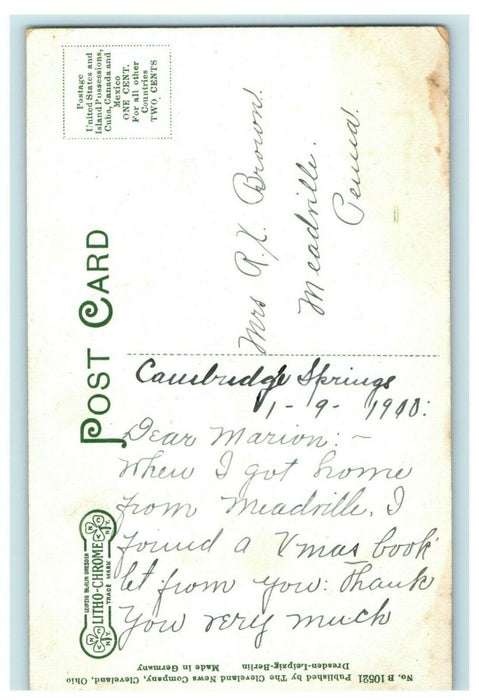 Postage
United States and
Island Possessions,
Cuba, Canada and
Mexico
ONE CENT.
For all other
Countries
TWO CENTS
POST CARD
Mrs R. X. Brown.
Meadville.
Penna.
Cambridge Springs
1-9-1910:
Dear Marion: -
When I got home
from Meadville, I
found a Xmas book
let from you: Thank
you very much
LEIPZIG BERLIN DRESDEN
LITHO-CHROME
TRADE MARK
N.Y.
No. B 10521 Published by The Cleveland News Company, Cleveland, Ohio
Dresden-Leipzig-Berlin Made in Germany